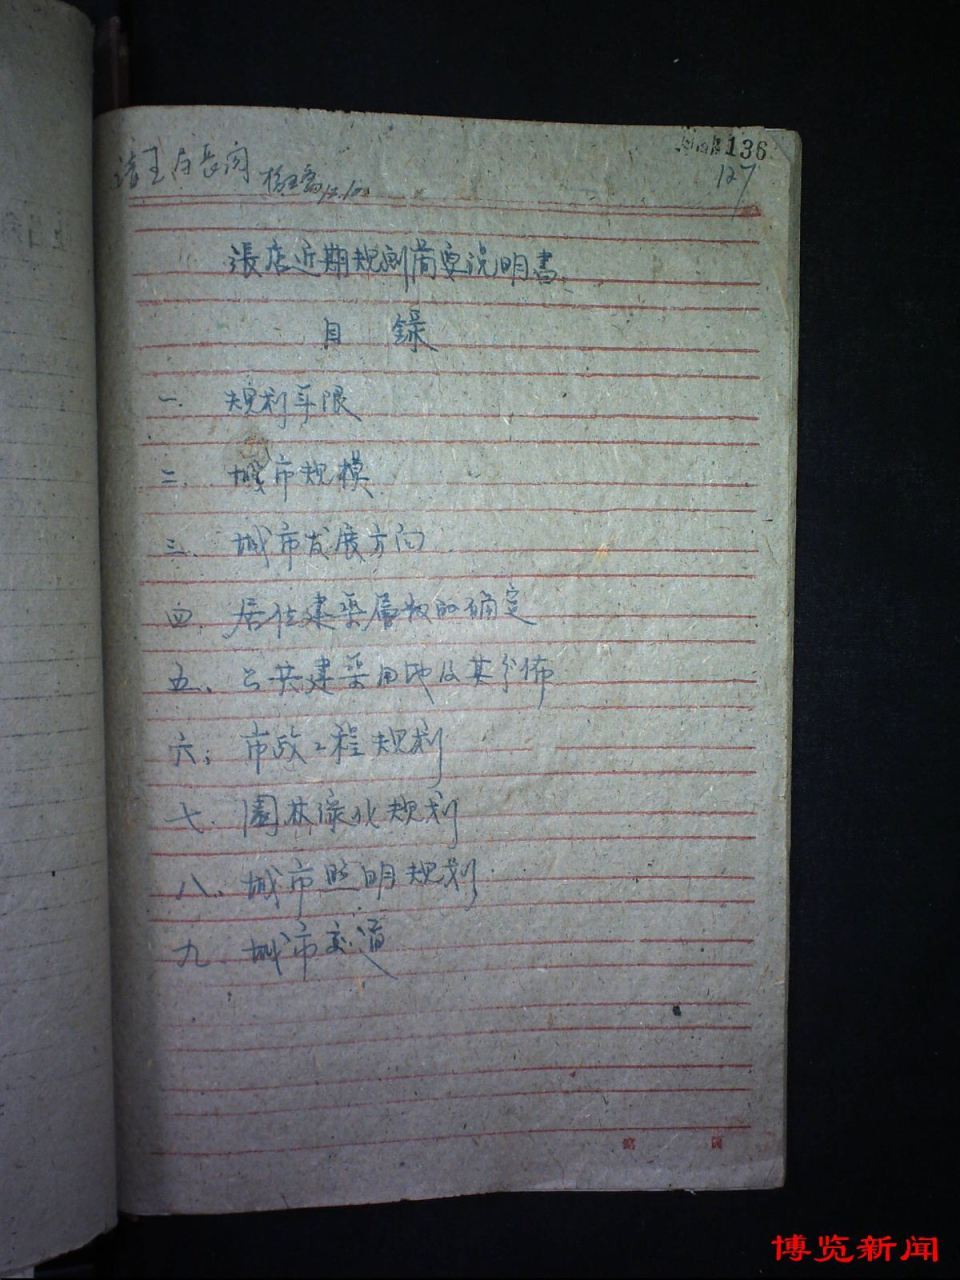 136
127
请王局长阅
12.
張店近期規劃简要说明書
目 錄
一. 規划年限
二. 城市規模
三. 城市发展方向
四. 居住建築層数的确定
五、公共建築用地及其分佈
六、市政工程規划
七. 園林绿化規划
八、城市照明規划
九 城市交通
第 頁
博览新闻